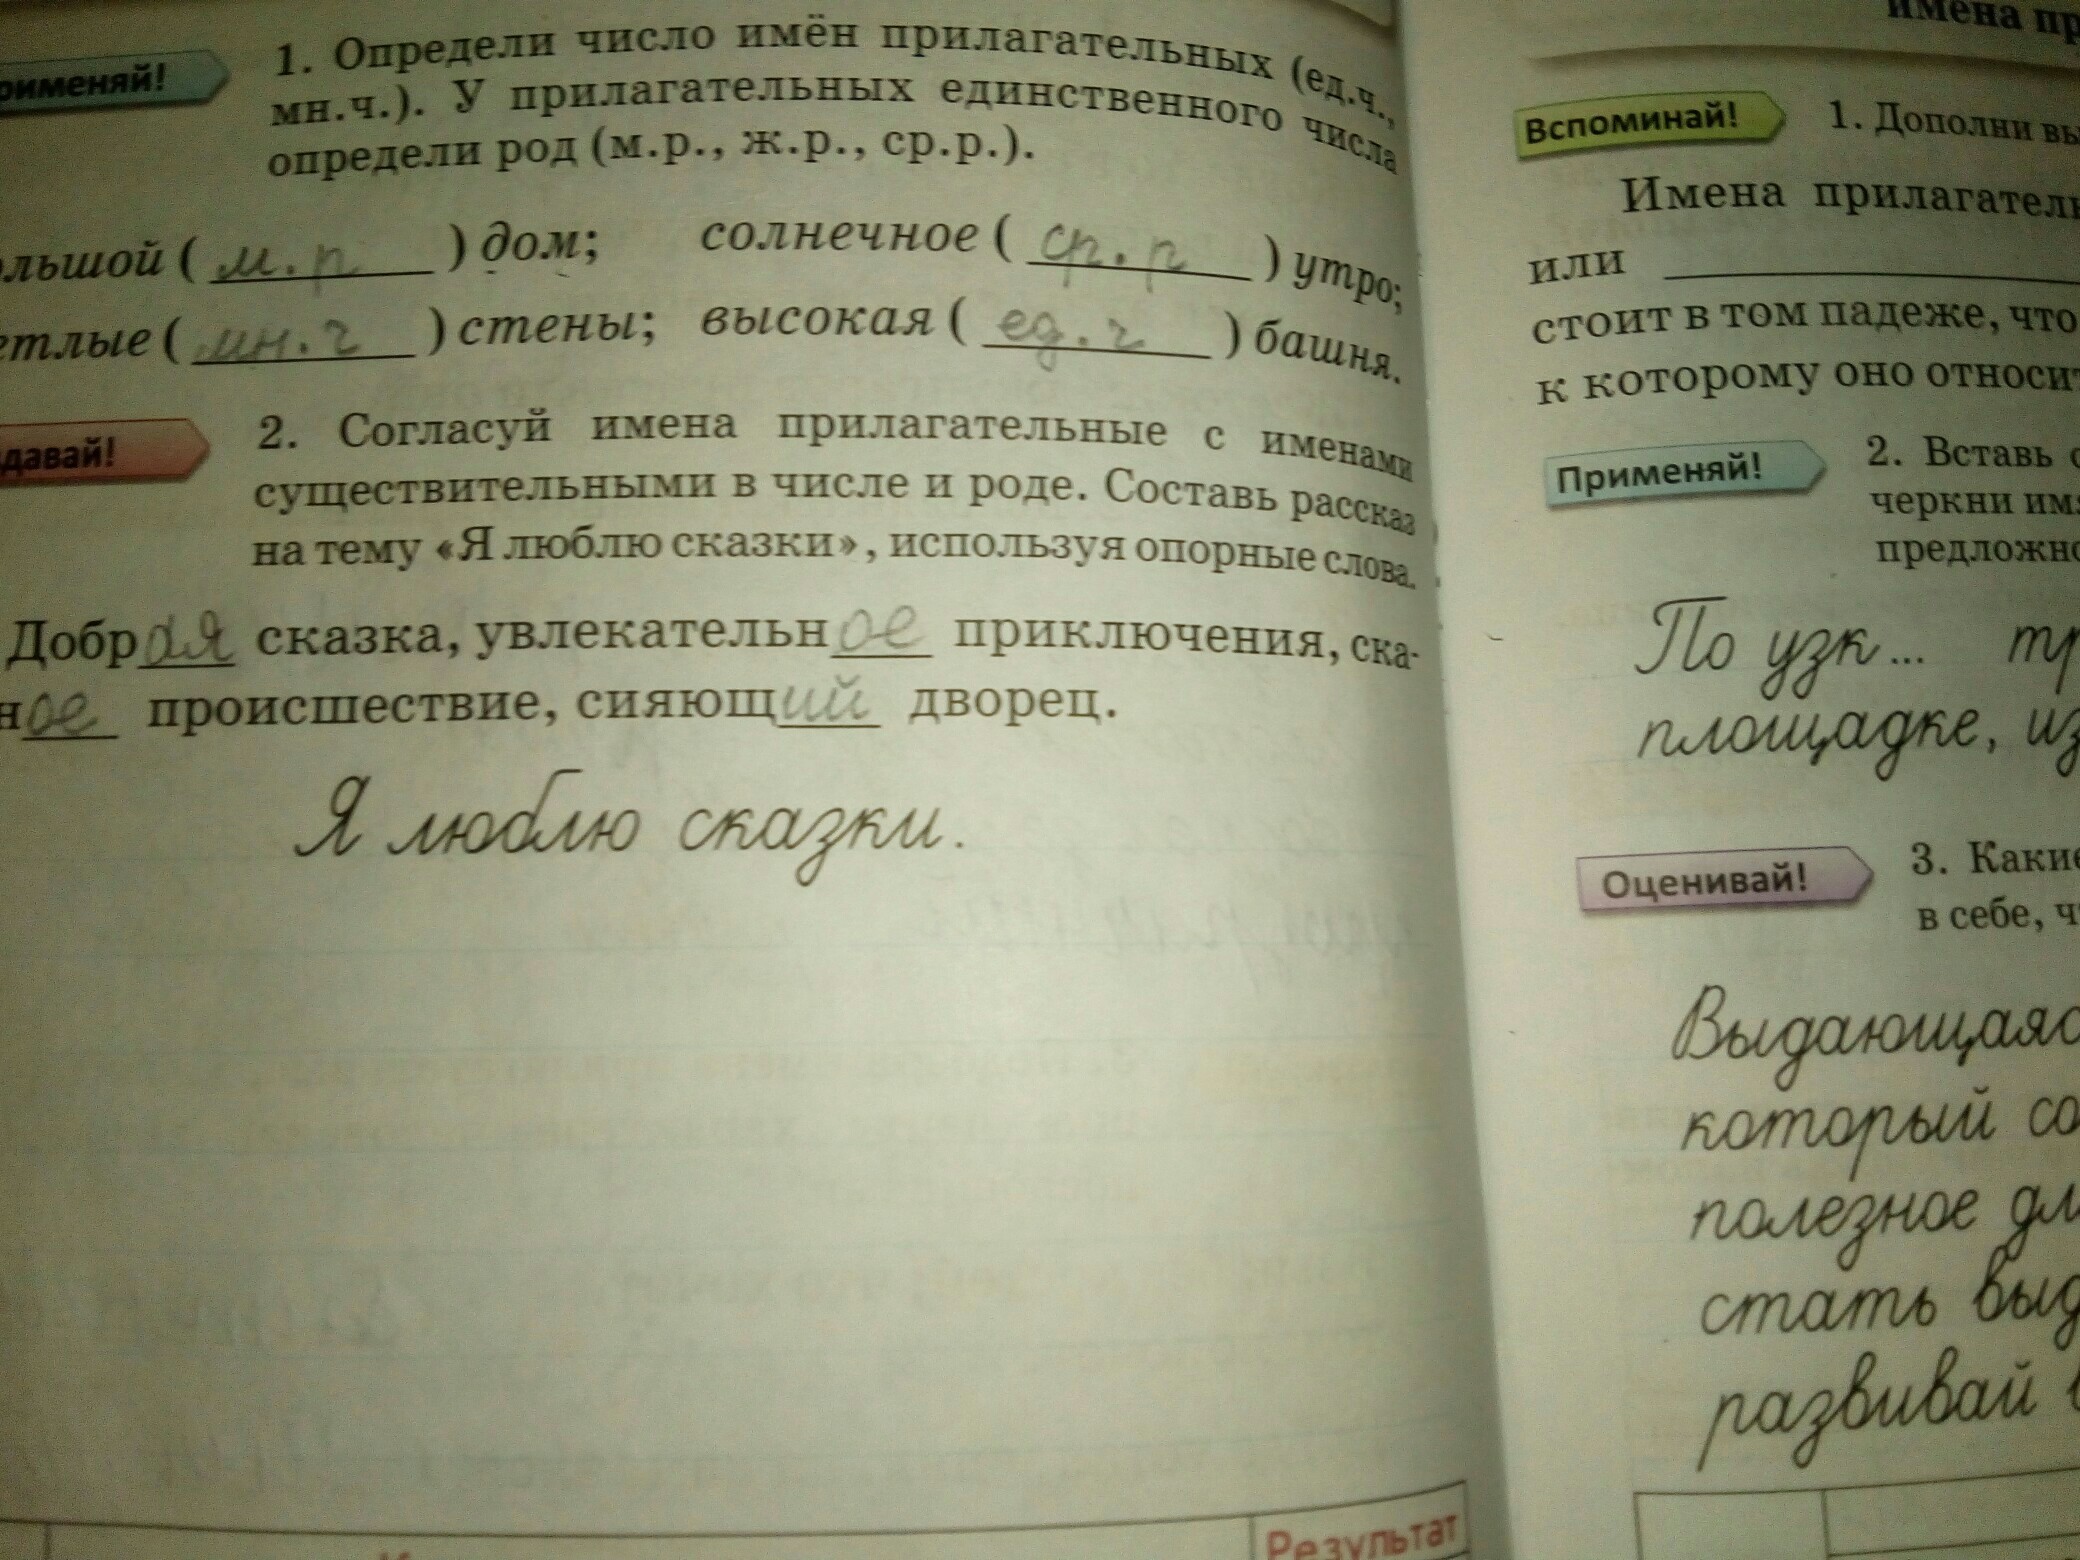 рименяй!
1. Определи число имён прилагательных (ед.ч.,
мн.ч.). У прилагательных единственного числа
определи род (м.р., ж.р., ср.р.).
ольшой ( м.р ) дом; солнечное ( ср.р ) утро;
етлые ( мн.ч ) стены; высокая ( ед.ч ) башня.
давай!
2. Согласуй имена прилагательные с именами
существительными в числе и роде. Составь рассказ
на тему «Я люблю сказки», используя опорные слова.
Добрая сказка, увлекательное приключения, ска-
ное происшествие, сияющий дворец.
Я люблю сказки.
Результат
имена пр
Вспоминай!
1. Дополни вы
Имена прилагатель
или
стоит в том падеже, что
к которому оно относит
Применяй!
2. Вставь о
черкни имя
предложно
По узк... тр
площадке, из
Оценивай!
3. Какие
в себе, ч
Выдающаяс
который со
полезное дл
стать выд
развивай